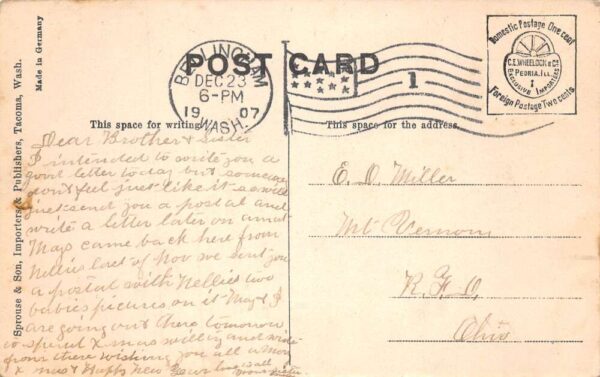 POST CARD
BELLINGHAM
DEC 23
6-PM
1907
WASH.
1
Domestic Postage One cent
C.E. WHEELOCK & CO.
PEORIA, ILL.
EXCLUSIVE IMPORTERS
Foreign Postage Two cents.
This space for writing
This space for the address.
Sprouse & Son, Importers & Publishers, Tacoma, Wash.
Made in Germany
Dear Brother & Sister
I intended to write you a
good letter today but somehow
don't feel just like it so will
just send you a postal and
write a letter later on
May came back here from
Nellies last of Nov we sent you
a postal with Nellies two
babies pictures on it May & I
are going out there tomorrow
to spend Xmas Willy and
from there wishing you all a
Xmas & Happy New Year
E. O. Miller
Mt Vernon
Ohio